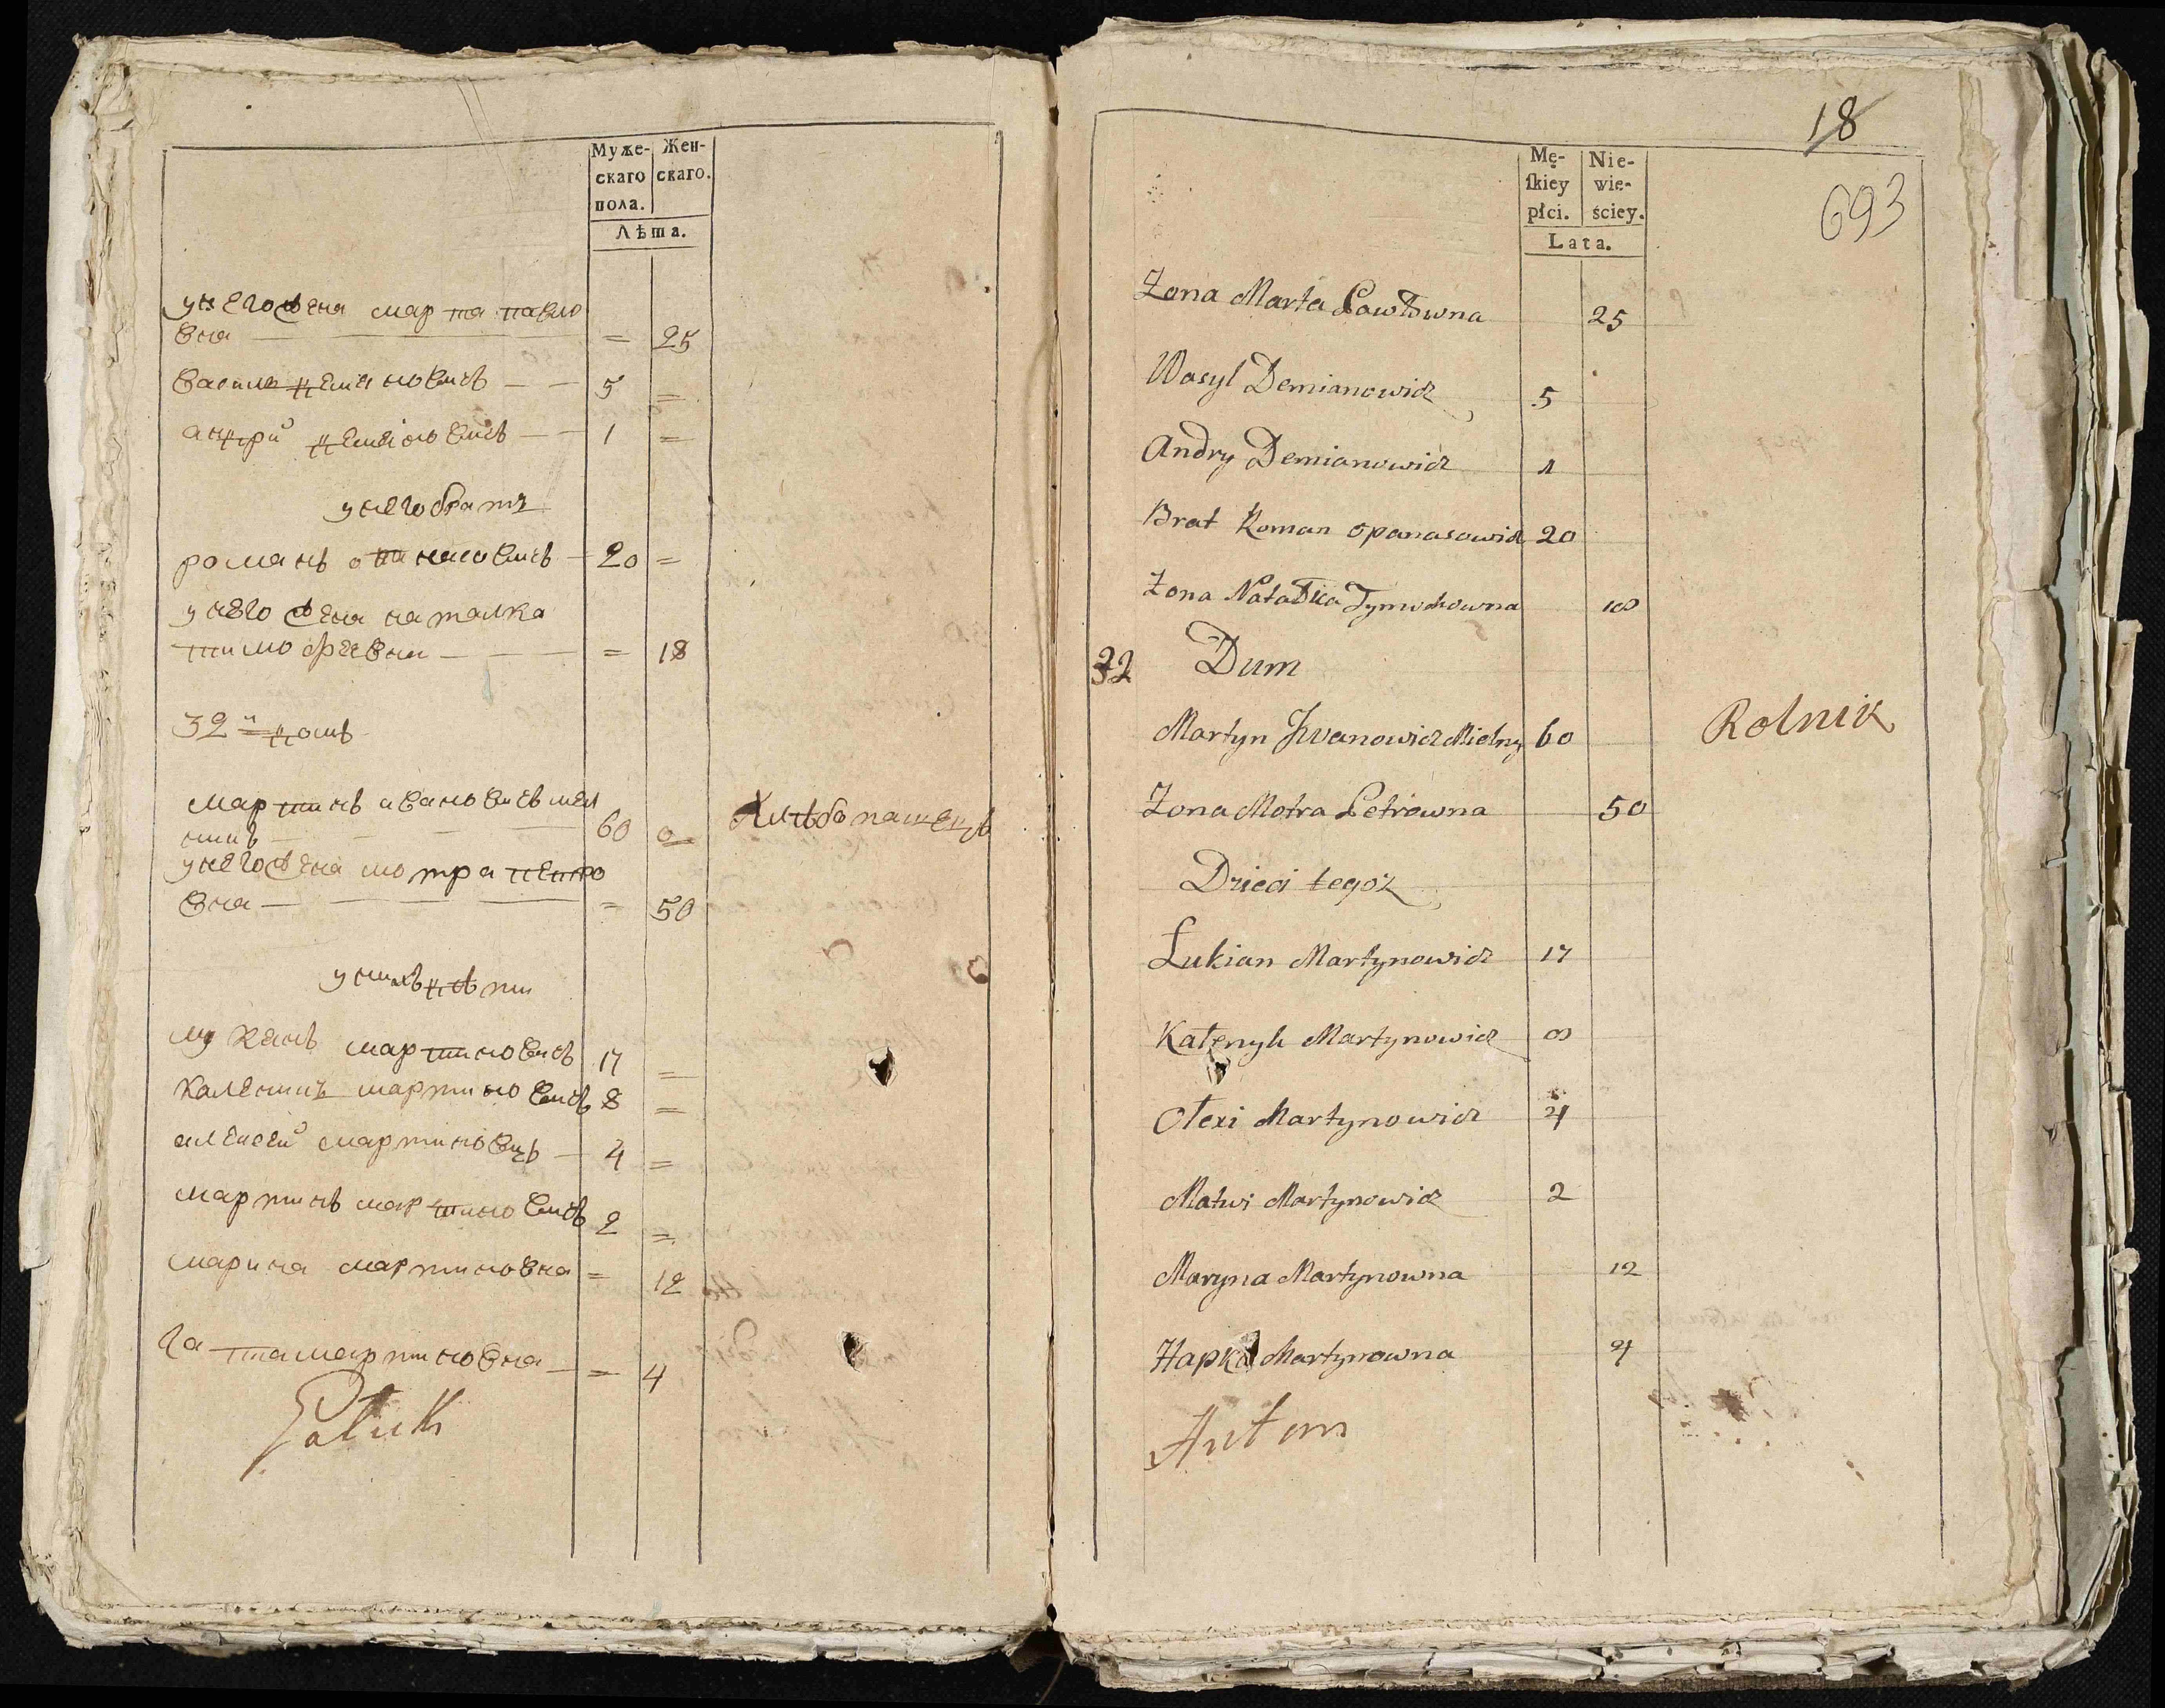 Муже-
скаго
пола.
Жен-
скаго.
Лѣта.
у него жена марта павло
вна = 25
василь демяновичъ 5 =
андрій демяновичъ 1 =
у него братъ
романъ опанасовичъ 20 =
у него жена наталка
тимофѣевна = 18
32й домъ
мартинъ ивановичъ мел
никъ 60 = Хлѣбопашецъ
у него жена мотра петро
вна = 50
у нихъ дѣти
лукянъ мартиновичъ 17 =
каленикъ мартиновичъ 8 =
алексей мартиновичъ 4 =
мартинъ мартиновичъ 2 =
марина мартиновна = 12
мартиновна = 4
18
693
Mę-
ſkiey
płci.
Nie-
wie-
ściey.
Lata.
Żona Marta Pawłowna 25
Wasyl Demianowicz 5
Andry Demianowicz 1
Brat Roman Opanasowicz 20
Żona Natałka Tymochowna 18
32 Dum
Martyn Jwanowicz Mielny 60 Rolnik
Żona Motra Petrowna 50
Dzieci tegoż
Łukian Martynowicz 17
Martynowicz 8
Ołexi Martynowicz 4
Matwi Martynowicz 2
Maryna Martynowna 12
Hapka Martynowna 4
Antoni